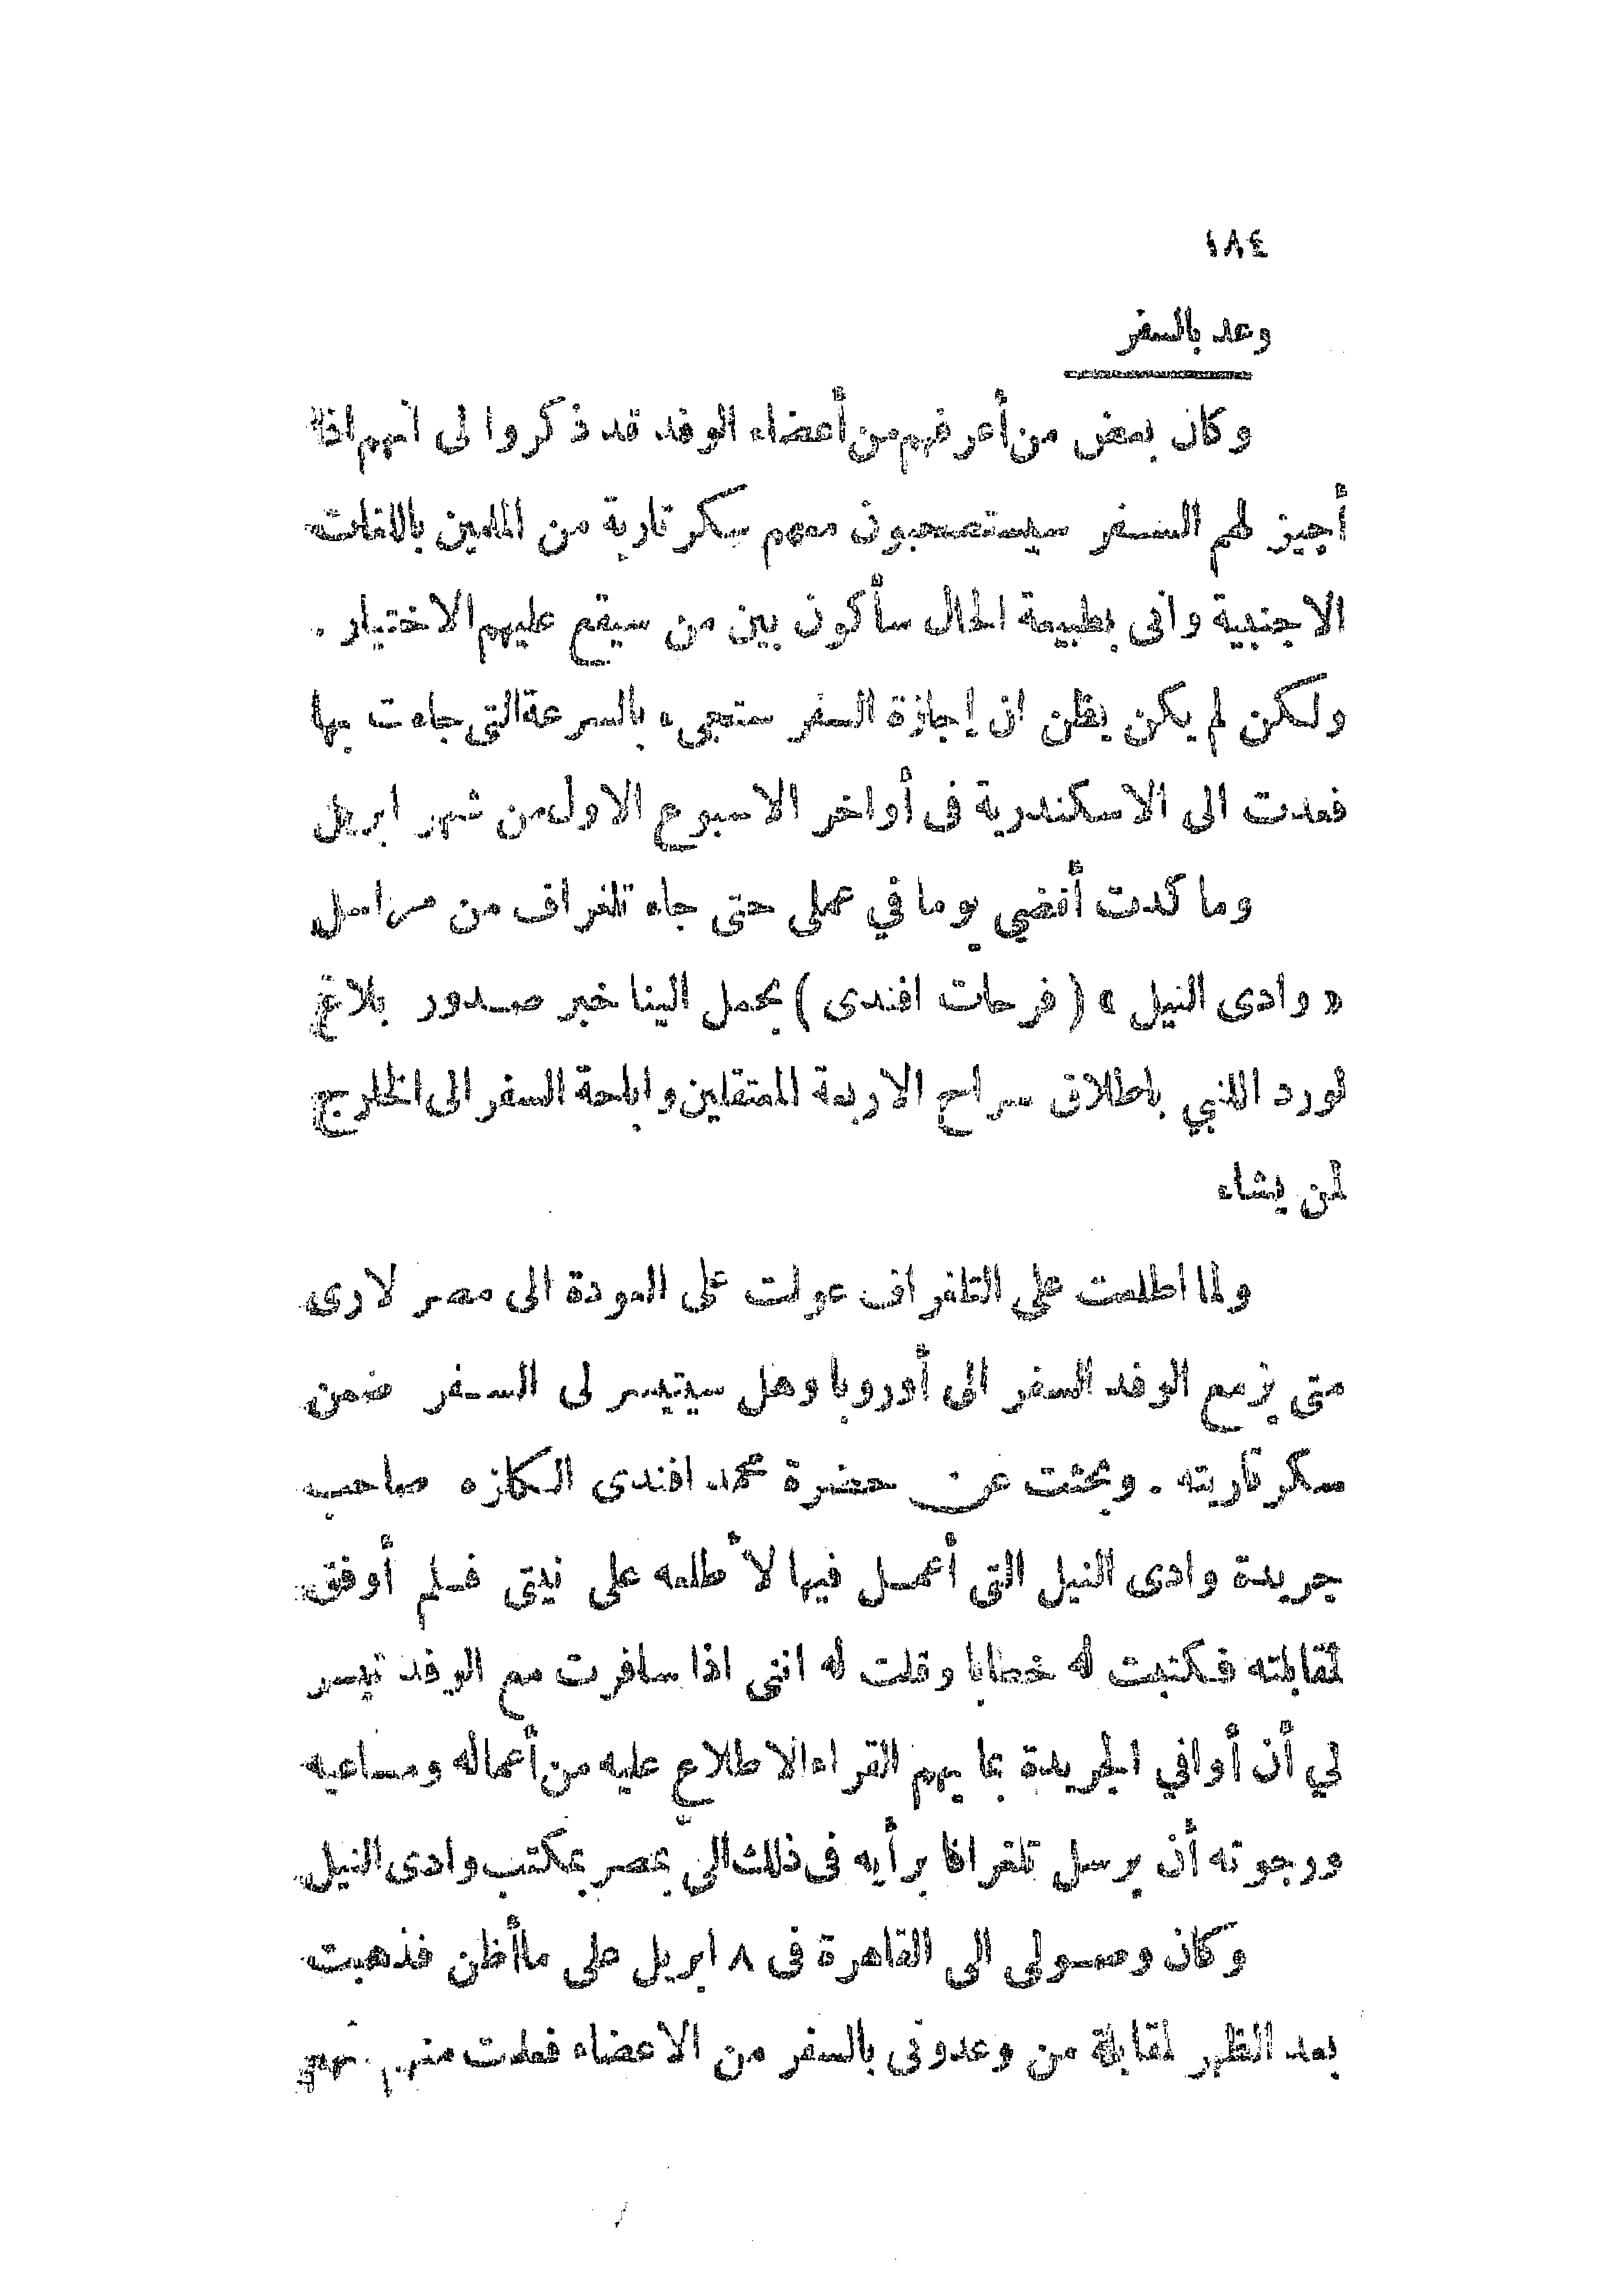 ١٨٤
وعد بالسفر
وكان بعض من أعرفهم من أعضاء الوفد قد ذكروا لى انهم اذا
أجيز لهم السفر سيستصحبون معهم سكرتارية من الملمين باللغات
الاجنبية وانى بطبيعة الحال سأكون بين من سيقع عليهم الاختيار .
ولكن لم يكن يظن ان إجازة السفر ستجىء بالسرعة التى جاءت بها
فعدت الى الاسكندرية فى أواخر الاسبوع الاول من شهر ابريل
وما كدت أقضي يوما في عملى حتى جاء تلغراف من مراسل
« وادى النيل » ( فرحات افندى ) يحمل الينا خبر صدور بلاغ
لورد اللنبي باطلاق سراح الاربعة المعتقلين واباحة السفر الى الخارج
لمن يشاء
ولما اطلعت علي التلغراف عولت على العودة الى مصر لارى
متى يزمع الوفد السفر الى أوروبا وهل سيتيسر لى السفر ضمن
سكرتاريته . وبحثت عن حضرة محمد افندى الكلزه صاحب
جريدة وادى النيل التى أعمل فيها لأطلعه على نيتى فلم أوفق
لمقابلته فكتبت له خطابا وقلت له اننى اذا سافرت مع الوفد تيسر
لي أن أوافي الجريدة بما يهم القراء الاطلاع عليه من أعماله ومساعيه
ورجوته أن يرسل تلغرافا برأيه فى ذلك الى بمصر بمكتب وادى النيل
وكان وصولى الى القاهرة فى ٨ ابريل على ما أظن فذهبت
بعد الظهر لمقابلة من وعدونى بالسفر من الاعضاء فعلمت منهم